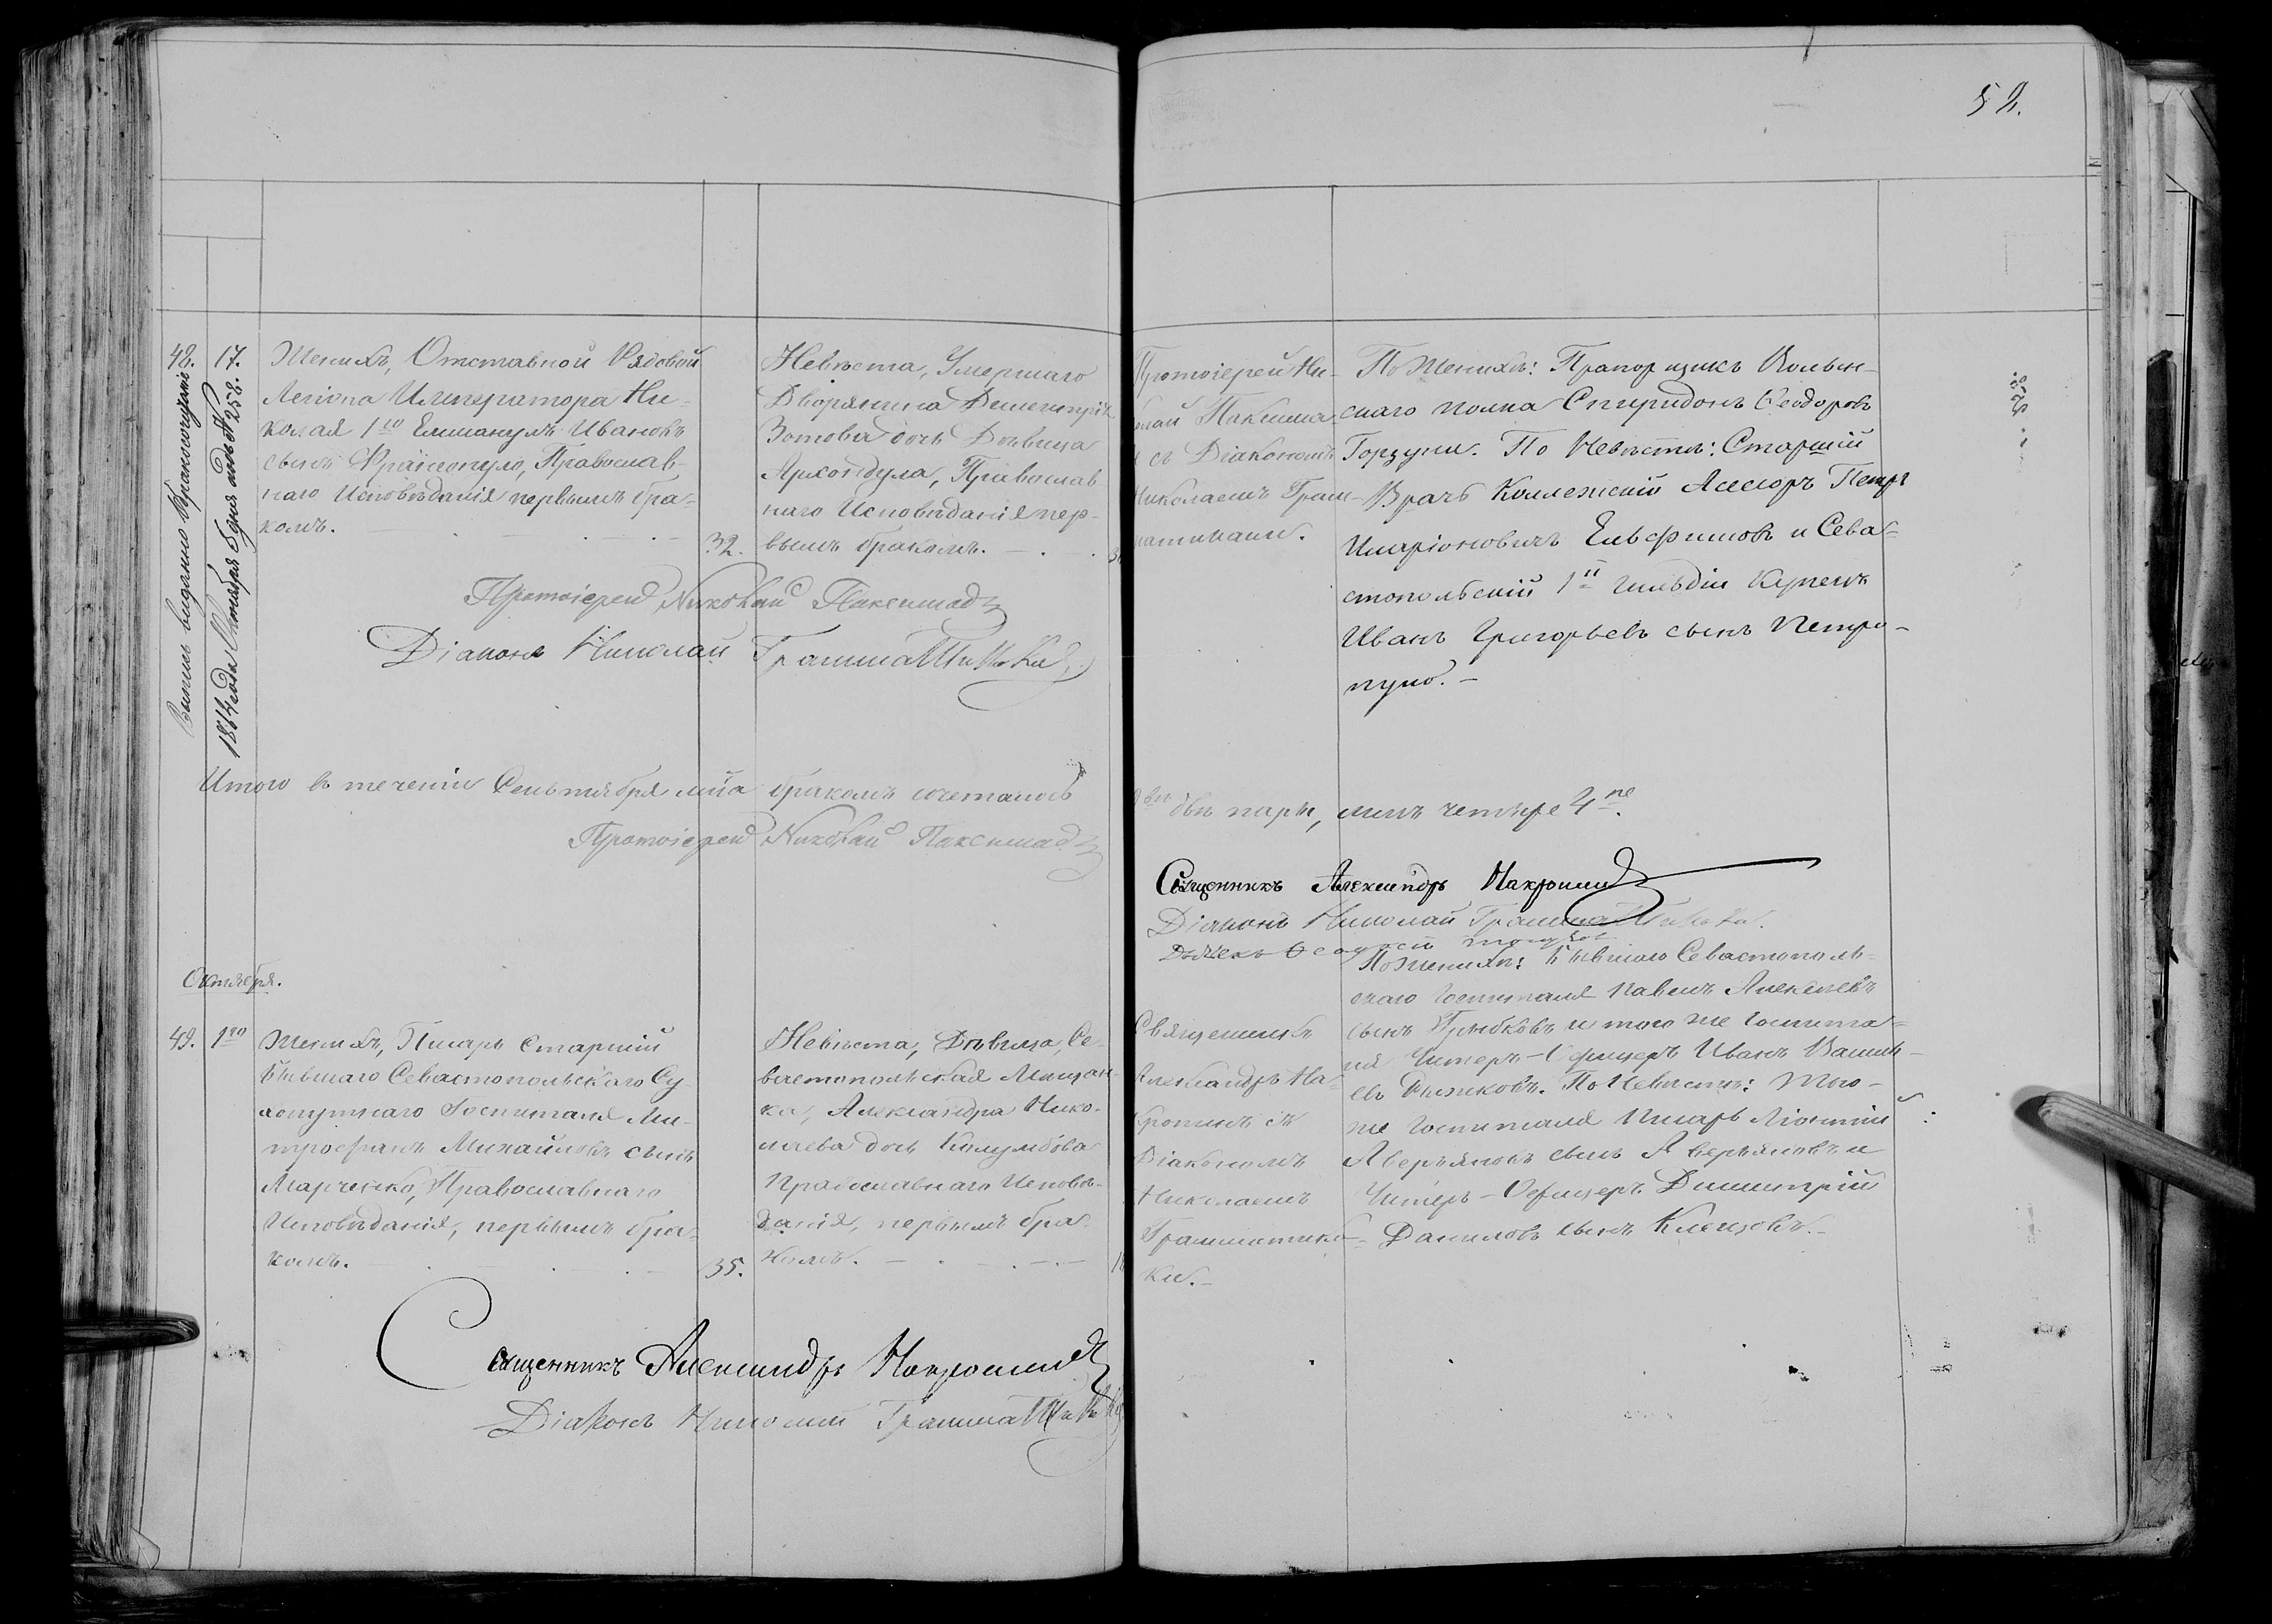 52.
48.
17.
Выпись выдана Бракосочетанія
1864 года Октября 5 дня подъ № 258.
Женихъ, Отставной Рядовой
Легіона Императора Ни-
колая 1го Еммануилъ Ивановъ
сынъ Франгопуло, Православ-
наго Исповѣданія первымъ бра-
комъ.
32.
Невѣста, Умершаго
Дворянина Димитрія
Зотова дочь Дѣвица
Архондула, Православ
наго Исповѣданія пер-
вымъ бракомъ.
Протоіерей Ни-
колай Паксима
съ Діакономъ
Николаемъ Грам-
матикаки.
По Женихѣ: Прапорщикъ Волын-
скаго полка Спиридонъ Ѳеодоровъ
Горзули. По Невѣстѣ: Старшій
Врачъ Коллежскій Асесоръ Петръ
Иларіоновичъ Елефимовъ и Сева-
стопольскій 1й гильдіи Купецъ
Иванъ Григорьевъ сынъ Петро-
пуло.
Протоіерей Николай Паксимадъ
Діаконъ Николай Грамматикаки
Итого въ теченіи Сентября м͠ца бракомъ сочеталось
двѣ пары, лицъ четыре 4ре.
Протоіерей Николай Паксимадъ
Священникъ Александръ Накропинъ
Діаконъ Николай Грамматикаки.
Октября.
49.
1го
Женихъ, Писарь Старшій
бывшаго Севастопольскаго Су
хопутнаго Госпиталя Ми-
трофанъ Михайловъ сынъ
Марченко, Православнаго
Исповѣданія, первымъ бра-
комъ.
35.
Невѣста, Дѣвица, Се-
вастопольская Мѣщан-
ка, Александра Нико-
лаева дочь Колумбова
Православнаго Исповѣ-
данія, первымъ бра-
комъ.
Священникъ
Александръ На-
кропинъ съ
Діакономъ
Николаемъ
Грамматика-
ки.
По Женихѣ: Бывшаго Севастополь-
скаго Госпиталя Павелъ Алексѣевъ
сынъ Грибковъ и того же Госпита-
ля Унтеръ-Офицеръ Иванъ Василь-
евъ Рыжковъ. По Невѣстѣ: Того-
же Госпиталя Писарь Леонтій
Аверьяновъ сынъ Аверьяновъ и
Унтеръ-Офицеръ Димитрій
Даниловъ сынъ Клецовъ.
Священникъ Александръ Накропинъ
Діаконъ Николай Грамматикаки